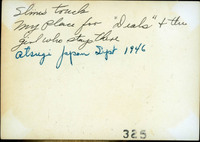 Elmer's truck
My Place for "Deals" & the
girl who stays there
Atsugi Japan Sept 1946
325